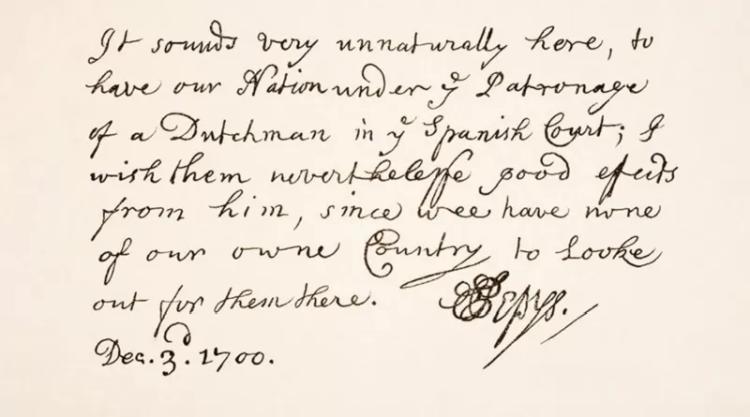 It sounds very unnaturally here, to
have our Nation under yᵉ Patronage
of a Dutchman in yᵉ Spanish Court; I
wish them neverthelesse good effects
from him, since wee have none
of our owne Country to Looke
out for them there. SPepys.
Dec. 3ᵈ. 1700.